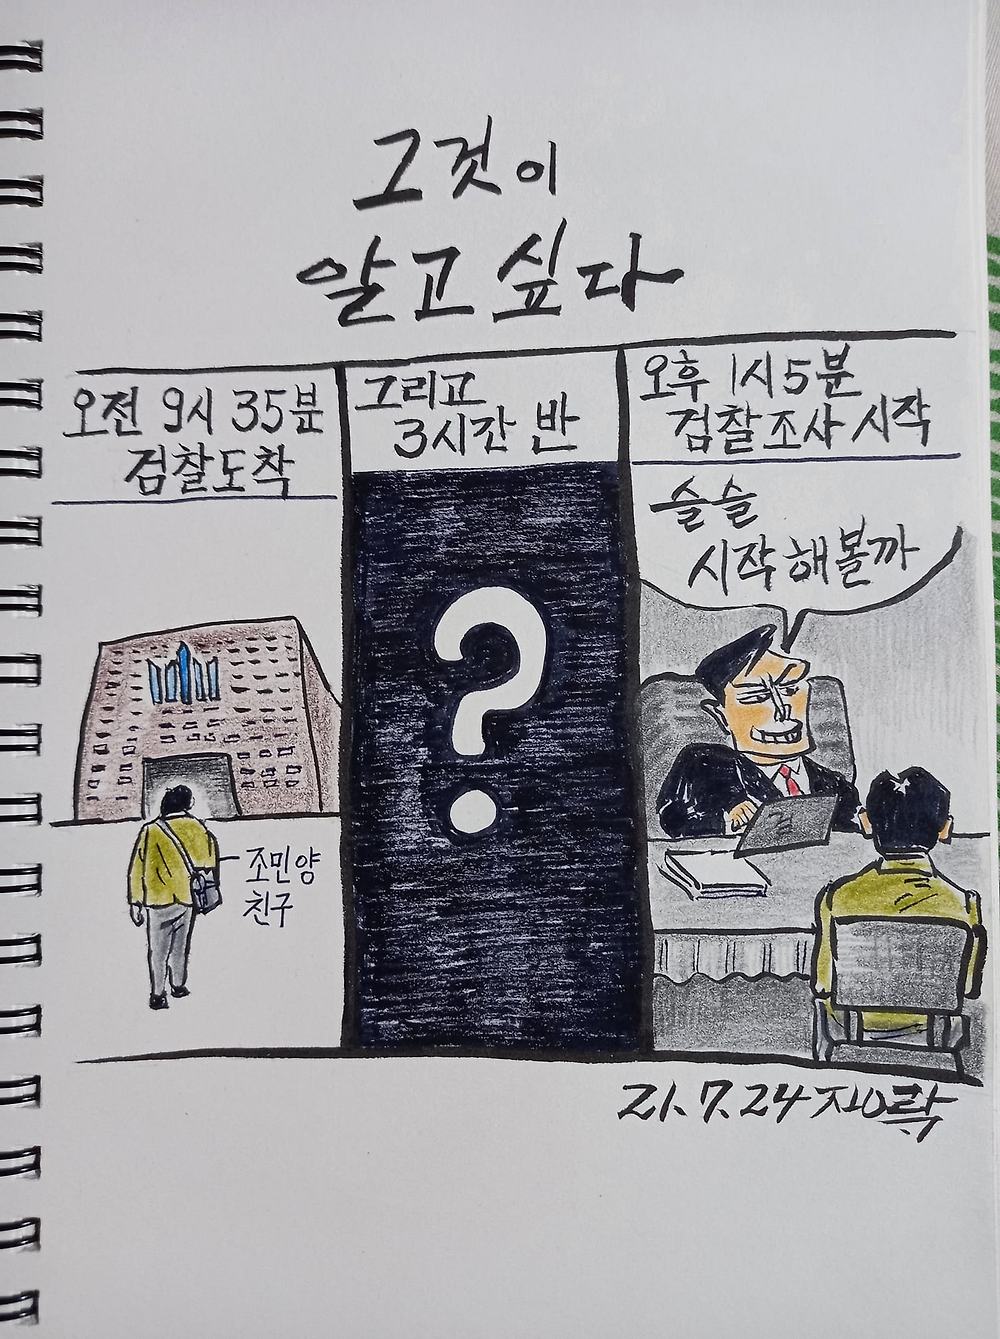 그것이
알고 싶다
오전 9시 35분
검찰도착
그리고
3시간 반
오후 1시 5분
검찰조사 시작
슬슬
시작해볼까
?
조민양
친구
21.7.24